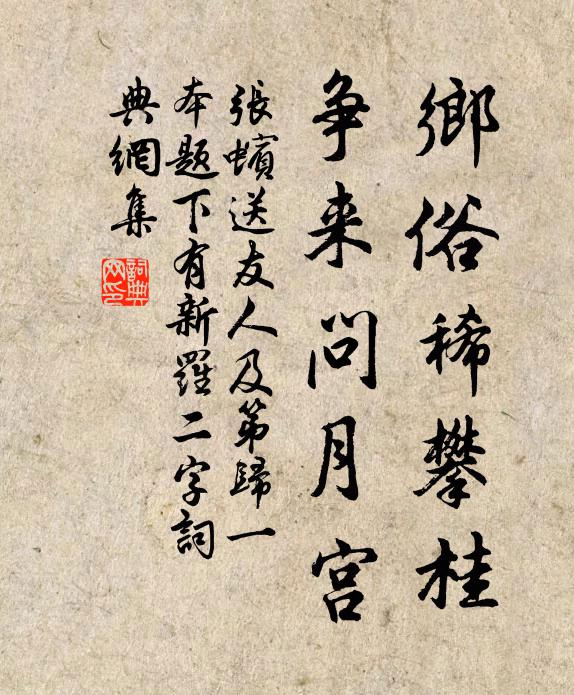 鄉俗稀攀桂
争来問月宫
張蠙送友人及第歸一
本題下有新羅二字詞
典網集
詞典网印